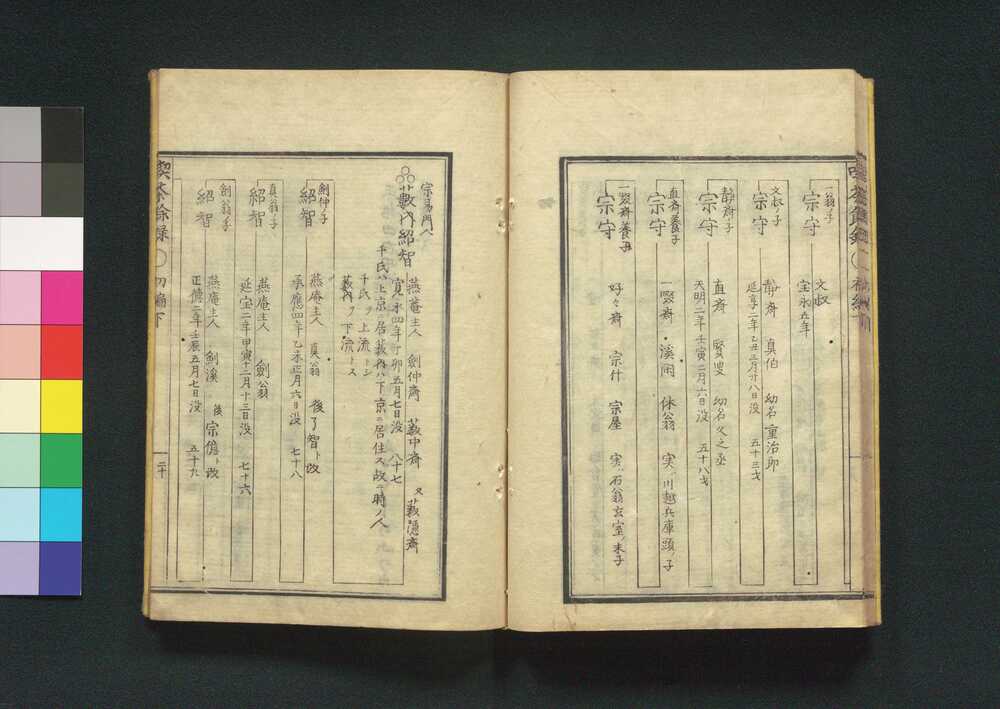 一翁ノ子
宗守
文叔
宝永五年
文叔ノ子
宗守
静斎 真伯 幼名 重治郎
延享二年乙丑三月廿八日没 五十三才
静斎ノ子
宗守
直斎 賢叟 幼名 久之丞
天明二年壬寅二月六日没 五十八才
直斎養子
宗守
一啜斎 渓閑 休翁 実ハ川越兵庫頭ノ子
一啜斎養子
宗守
好々斎 宗什 宗屋 実ハ石翁玄室ノ末子
宗易門人
藪内紹智
燕庵主人 劔仲斎 藪中斎 又藪隠斎
寛永四年丁卯五月七日没 八十七
千氏ハ上京ニ居藪内ハ下京ニ居住ス故ニ時ノ人
千氏ヲ上流トシ
藪内ヲ下流トス
劔仲ノ子
紹智
燕庵主人 真翁 後了智ト改
承應四年乙未正月六日没 七十八
真翁ノ子
紹智
燕庵主人 劔翁
延宝二年甲寅十二月十三日没 七十六
劔翁ノ子
紹智
燕庵主人 劔溪 後宗憺ト改
正德二年壬辰五月七日没 五十九
喫茶余録 初編下
二十